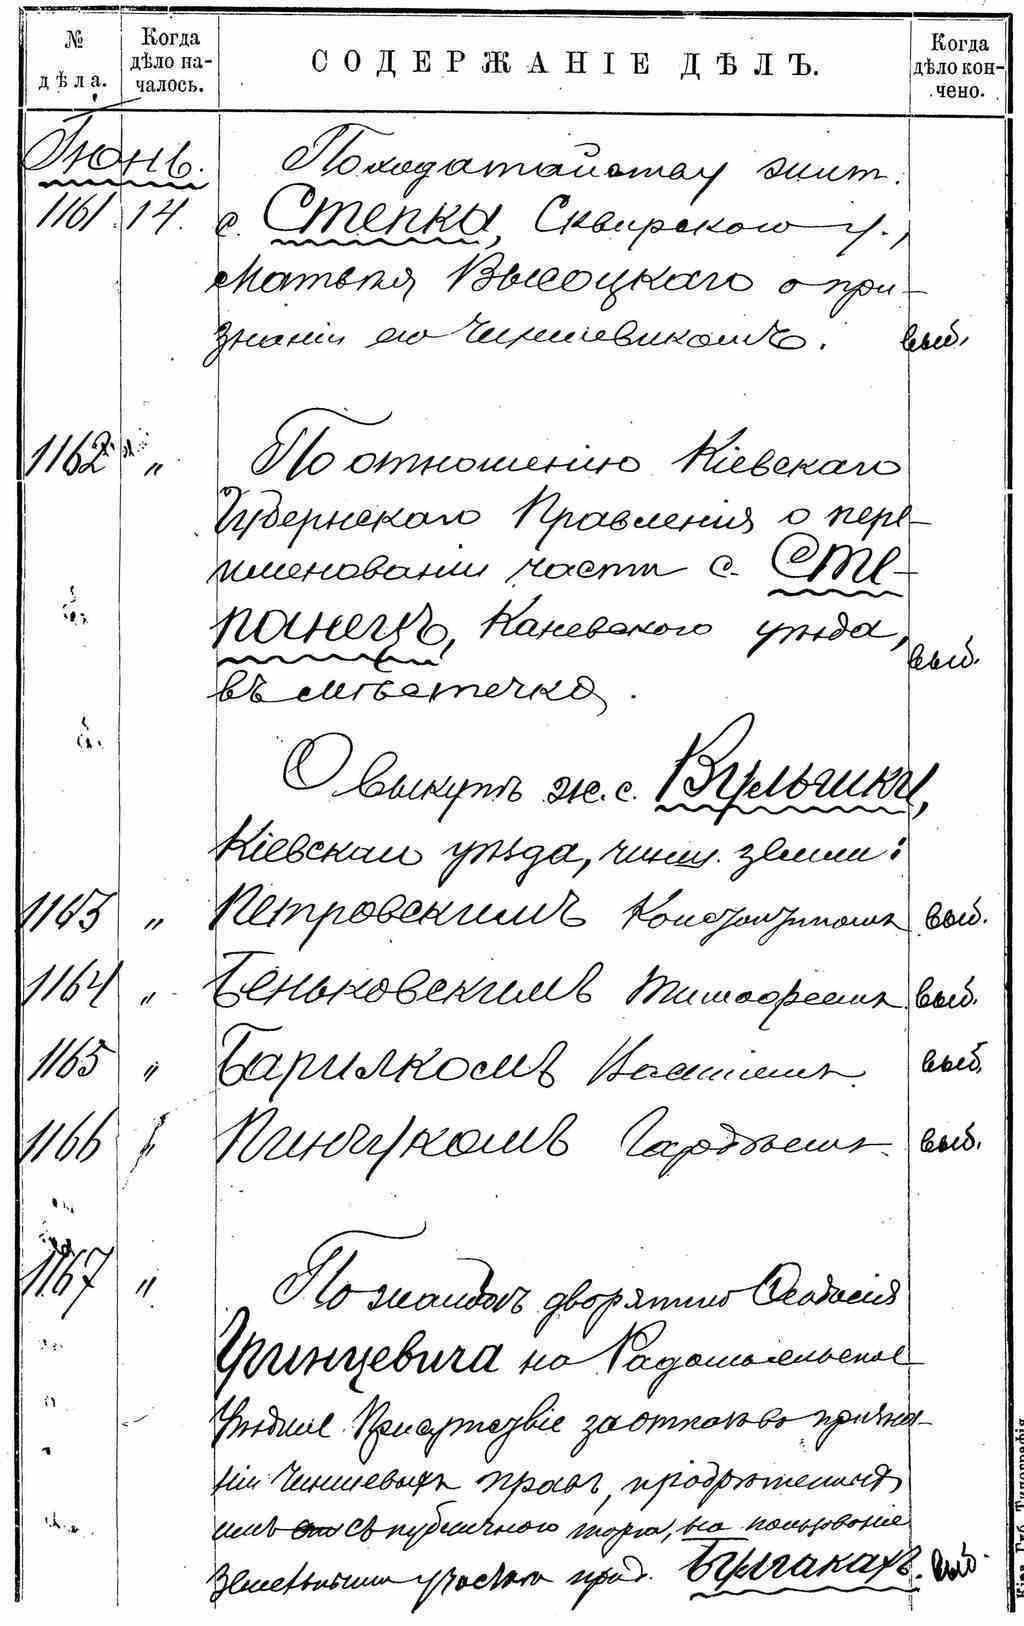 № дѣла. Когда дѣло началось. СОДЕРЖАНІЕ ДѢЛЪ. Когда дѣло кончено.
Іюнь. По ходатайству жит.
1161 14. с. Степка, Сквирскаго у.,
Матвѣя Высоцкаго о при-
знаніи его чиншевикомъ. выб.
1162 „ По отношенію Кіевскаго
Губернскаго Правленія о пере-
именованіи части с. Сте-
панецъ, Каневскаго уѣзда, выб.
въ мѣстечко.
О выкупѣ ж. с. Вульшки,
Кіевскаго уѣзда, чинш. земли:
1163 „ Петровскимъ выб.
1164 „ Беньковскимъ Тимофеемъ выб.
1165 „ Барилкомъ выб.
1166 „ Пинчукомъ Гордѣемъ выб.
1167 „ По жалобѣ дворянина
Гринцевича на Радомысльское
Уѣздное Присутствіе за отказъ въ призна-
ніи чиншевыхъ правъ, пріобрѣтенныхъ
имъ съ публичнаго торга, на пользованіе
земельнымъ участкомъ при д. Булгакахъ. выб.
Кіев. Губ. Типографія